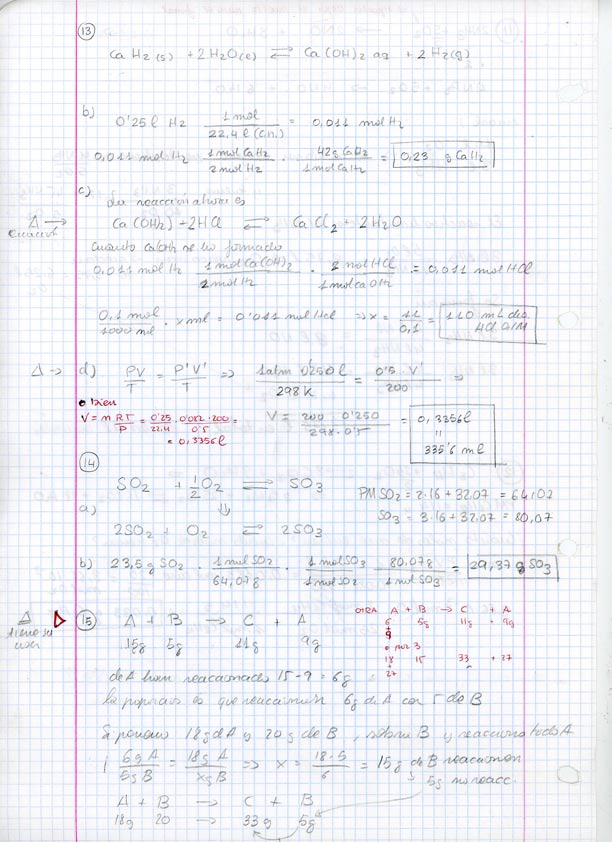 13
CaH₂(s) + 2H₂O(l) ⇌ Ca(OH)₂ aq + 2H₂(g)
b) 0'25 l H₂ 1 mol / 22,4 l (c.n.) = 0,011 mol H₂
0,011 mol H₂ 1 mol CaH₂ / 2 mol H₂ · 42g CaH₂ / 1 mol CaH₂ = 0,23 g CaH₂
c) La reacción ahora es
Δ → Ca(OH₂) + 2HCl ⇌ CaCl₂ + 2H₂O
Cuanto Ca(OH)₂ se ha formado
0,011 mol H₂ 1 mol Ca(OH)₂ / 2 mol H₂ · 2 mol HCl / 1 mol CaOH₂ = 0,011 mol HCl
0,1 mol / 1000 ml · x ml = 0'011 mol HCl ⇒ x = 11 / 0,1 = 110 mL dis. HCl 0,1M
Δ → d) PV / T = P'V' / T' ⇒ 1 atm 0'250 l / 298 K = 0'5 · V' / 200 ⇒
o bien
V = n RT / P = 0'25 / 22,4 · 0'082 · 200 / 0'5 = 0,3356 l
V = 200 · 0'250 / 298 · 0'5 = 0,3356 l = 335'6 ml
14
SO₂ + 1/2 O₂ ⇌ SO₃
PM SO₂ = 2·16 + 32.07 = 64,07
a) ⇓
SO₃ = 3·16 + 32.07 = 80,07
2SO₂ + O₂ ⇌ 2SO₃
b) 23,5 g SO₂ · 1 mol SO₂ / 64,07g · 1 mol SO₃ / 1 mol SO₂ · 80,07g / 1 mol SO₃ = 29,37 g SO₃
Δ 15 A + B → C + A
15g 5g 11g 9g
OTRA A + B → C + A
6 5g 11g + 9g
+
9
· por 3
18 15 33 + 27
+
27
de A han reaccionado 15 - 9 = 6g
la proporción es que reaccionan 6g de A con 5 de B
Si ponemos 18g de A y 20g de B, sobra B y reacciona todo A
6g A / 5g B = 18g A / xg B ⇒ x = 18·5 / 6 = 15g de B reaccionan
5g no reacc.
A + B → C + B
18g 20 → 33g 5g